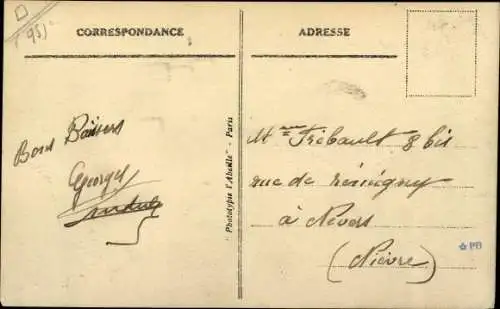 (95)
CORRESPONDANCE
Bons Baisers
Georges
Phototype "l'Abeille" - Paris
ADRESSE
Mme Trébault 8 bis
rue de Rémigny
à Nevers
(Nièvre)
PB